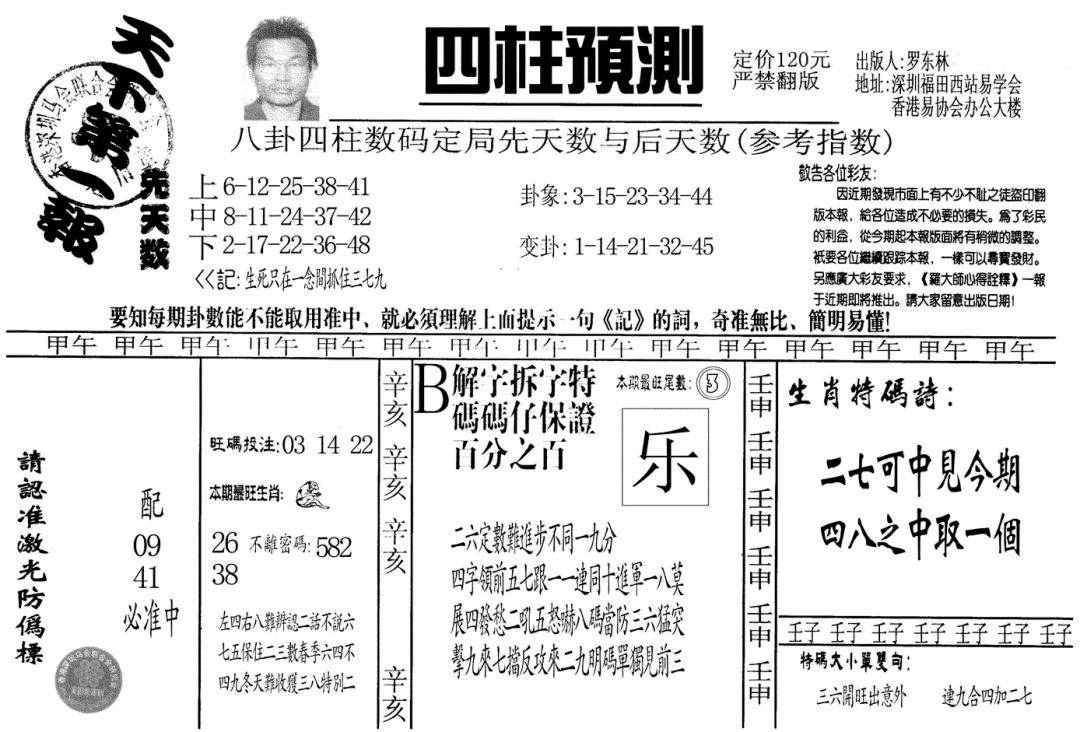 天下第一報
四柱預測
定价120元
严禁翻版
出版人:罗东林
地址:深圳福田西站易学会
香港易协会办公大楼
八卦四柱数码定局先天数与后天数(参考指数)
先天数
上 6-12-25-38-41
中 8-11-24-37-42
下 2-17-22-36-48
<<記:生死只在一念間抓住三七九
卦象:3-15-23-34-44
变卦:1-14-21-32-45
敬告各位彩友:
因近期發現市面上有不少不耻之徒盜印翻
版本報,給各位造成不必要的損失。爲了彩民
的利益,從今期起本報版面將有稍微的調整。
衹要各位繼續跟踪本報,一樣可以尋寶發財。
另應廣大彩友要求,《羅大師心得詮釋》一報
于近期即將推出。請大家留意出版日期!
要知每期卦數能不能取用准中、就必須理解上面提示一句《記》的詞,奇准無比、簡明易懂!
甲午 甲午 甲午 甲午 甲午 甲午 甲午 甲午 甲午 甲午 甲午 甲午 甲午 甲午 甲午
請認准激光防僞標
配
09
41
必准中
旺碼投注:03 14 22
本期最旺生肖:
26 不離密碼:582
38
左四右八難辨認二話不說六
七五保住二三數春季六四不
四九冬天難收獲三八特別二
辛亥 辛亥 辛亥 辛亥
B解字拆字特
碼碼仔保證
百分之百
本期最旺尾數:3
乐
二六定數難進步不同一九分
四字領前五七跟一一連同十進軍一八莫
展四發愁二吼五怒嚇八碼當防三六猛突
擊九來七擋反攻來二九明碼單獨見前三
壬申 壬申 壬申 壬申 壬申 壬申
生肖特碼詩:
二七可中見今期
四八之中取一個
壬子 壬子 壬子 壬子 壬子 壬子 壬子
特碼大小單雙句:
三六開旺出意外 連九合四加二七